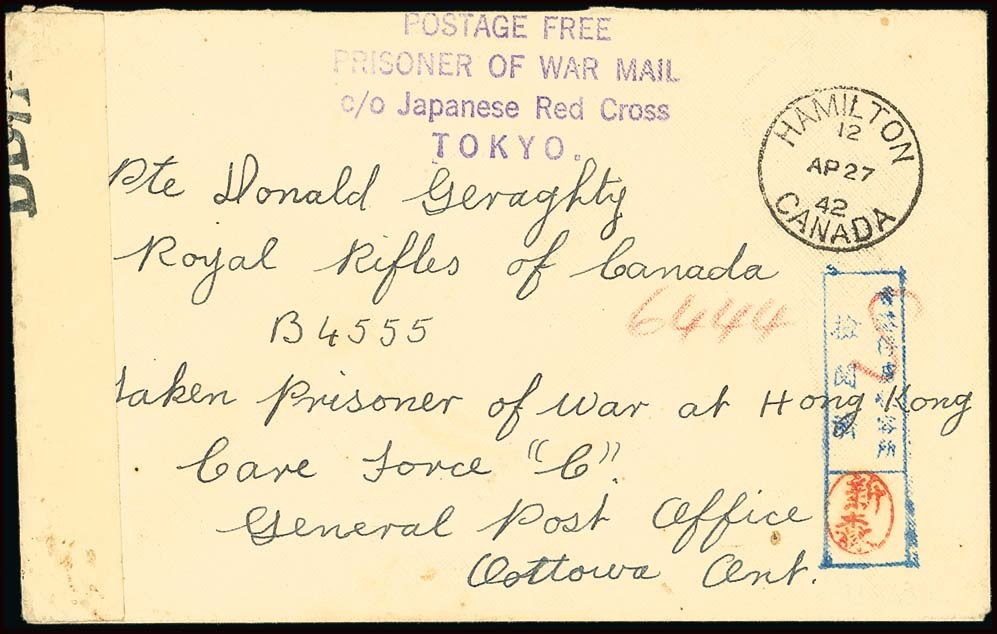 POSTAGE FREE
PRISONER OF WAR MAIL
c/o Japanese Red Cross
TOKYO.
HAMILTON
12
AP 27
42
CANADA
Pte Donald Geraghty
Royal Rifles of Canada
B4555
6444
taken Prisoner of War at Hong Kong
Care Force "C"
General Post Office
Oottowa Ont.
検閲